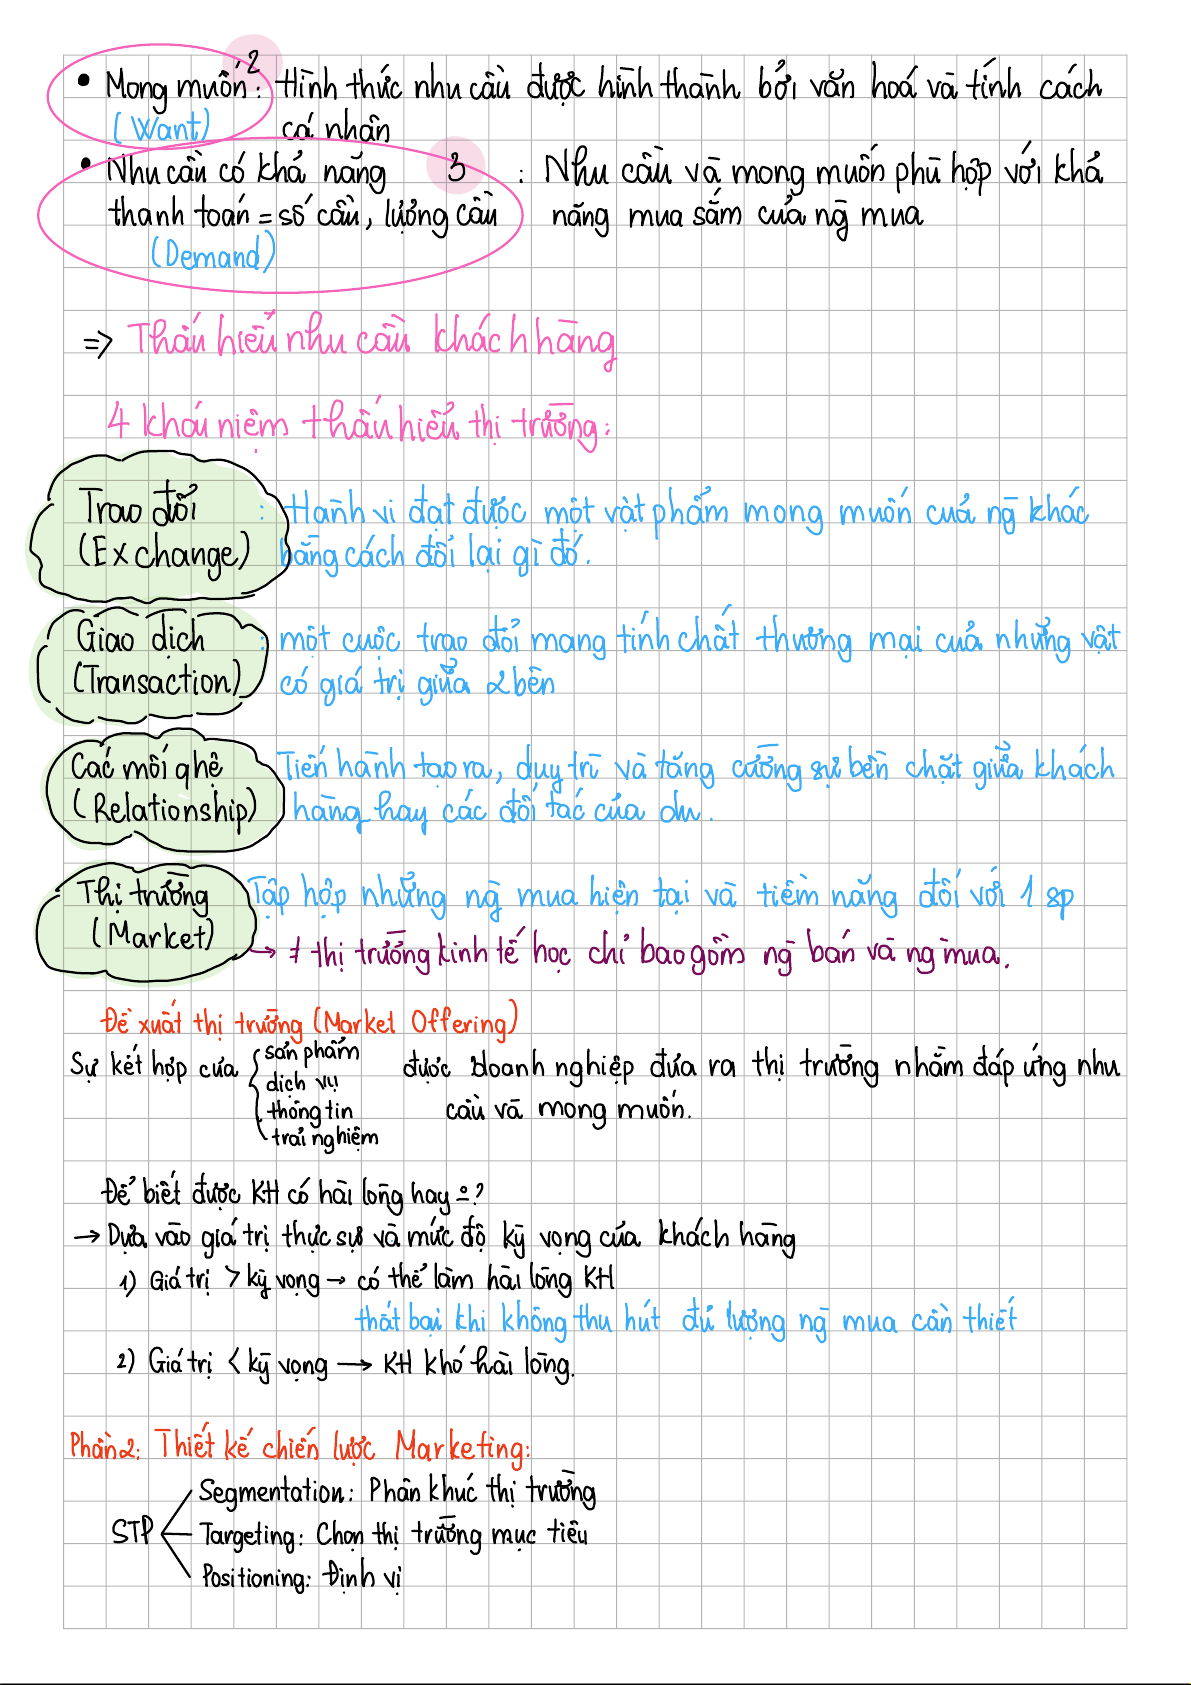 • Mong muốn: 2 Hình thức nhu cầu được hình thành bởi văn hoá và tính cách
(Want) cá nhân
• Nhu cầu có khả năng 3 : Nhu cầu và mong muốn phù hợp với khả
thanh toán = số cầu, lượng cầu năng mua sắm của ng̃ mua
(Demand)
=> Thấu hiểu nhu cầu khách hàng
4 khái niệm thấu hiểu thị trường:
Trao đổi : Hành vi đạt được một vật phẩm mong muốn của ng̃ khác
(Exchange) bằng cách đổi lại gì đó.
Giao dịch : một cuộc trao đổi mang tính chất thương mại của những vật
(Transaction) có giá trị giữa 2 bên
Các mối qhệ Tiến hành tạo ra, duy trì và tăng cường sự bền chặt giữa khách
(Relationship) hàng hay các đối tác của dn.
Thị trường Tập hợp những ng̃ mua hiện tại và tiềm năng đối với 1 sp
(Market) → ≠ thị trường kinh tế học chỉ bao gồm ng̃ bán và ng̃ mua.
Đề xuất thị trường (Market Offering)
Sự kết hợp của { sản phẩm được doanh nghiệp đưa ra thị trường nhằm đáp ứng nhu
dịch vụ
thông tin cầu và mong muốn.
trải nghiệm
Để biết được KH có hài lòng hay ?
→ Dựa vào giá trị thực sự và mức độ kỳ vọng của khách hàng
1) Giá trị > kỳ vọng → có thể làm hài lòng KH
thất bại khi không thu hút đủ lượng ng̃ mua cần thiết
2) Giá trị < kỳ vọng → KH khó hài lòng.
Phần 2: Thiết kế chiến lược Marketing:
Segmentation: Phân khúc thị trường
STP Targeting: Chọn thị trường mục tiêu
Positioning: Định vị